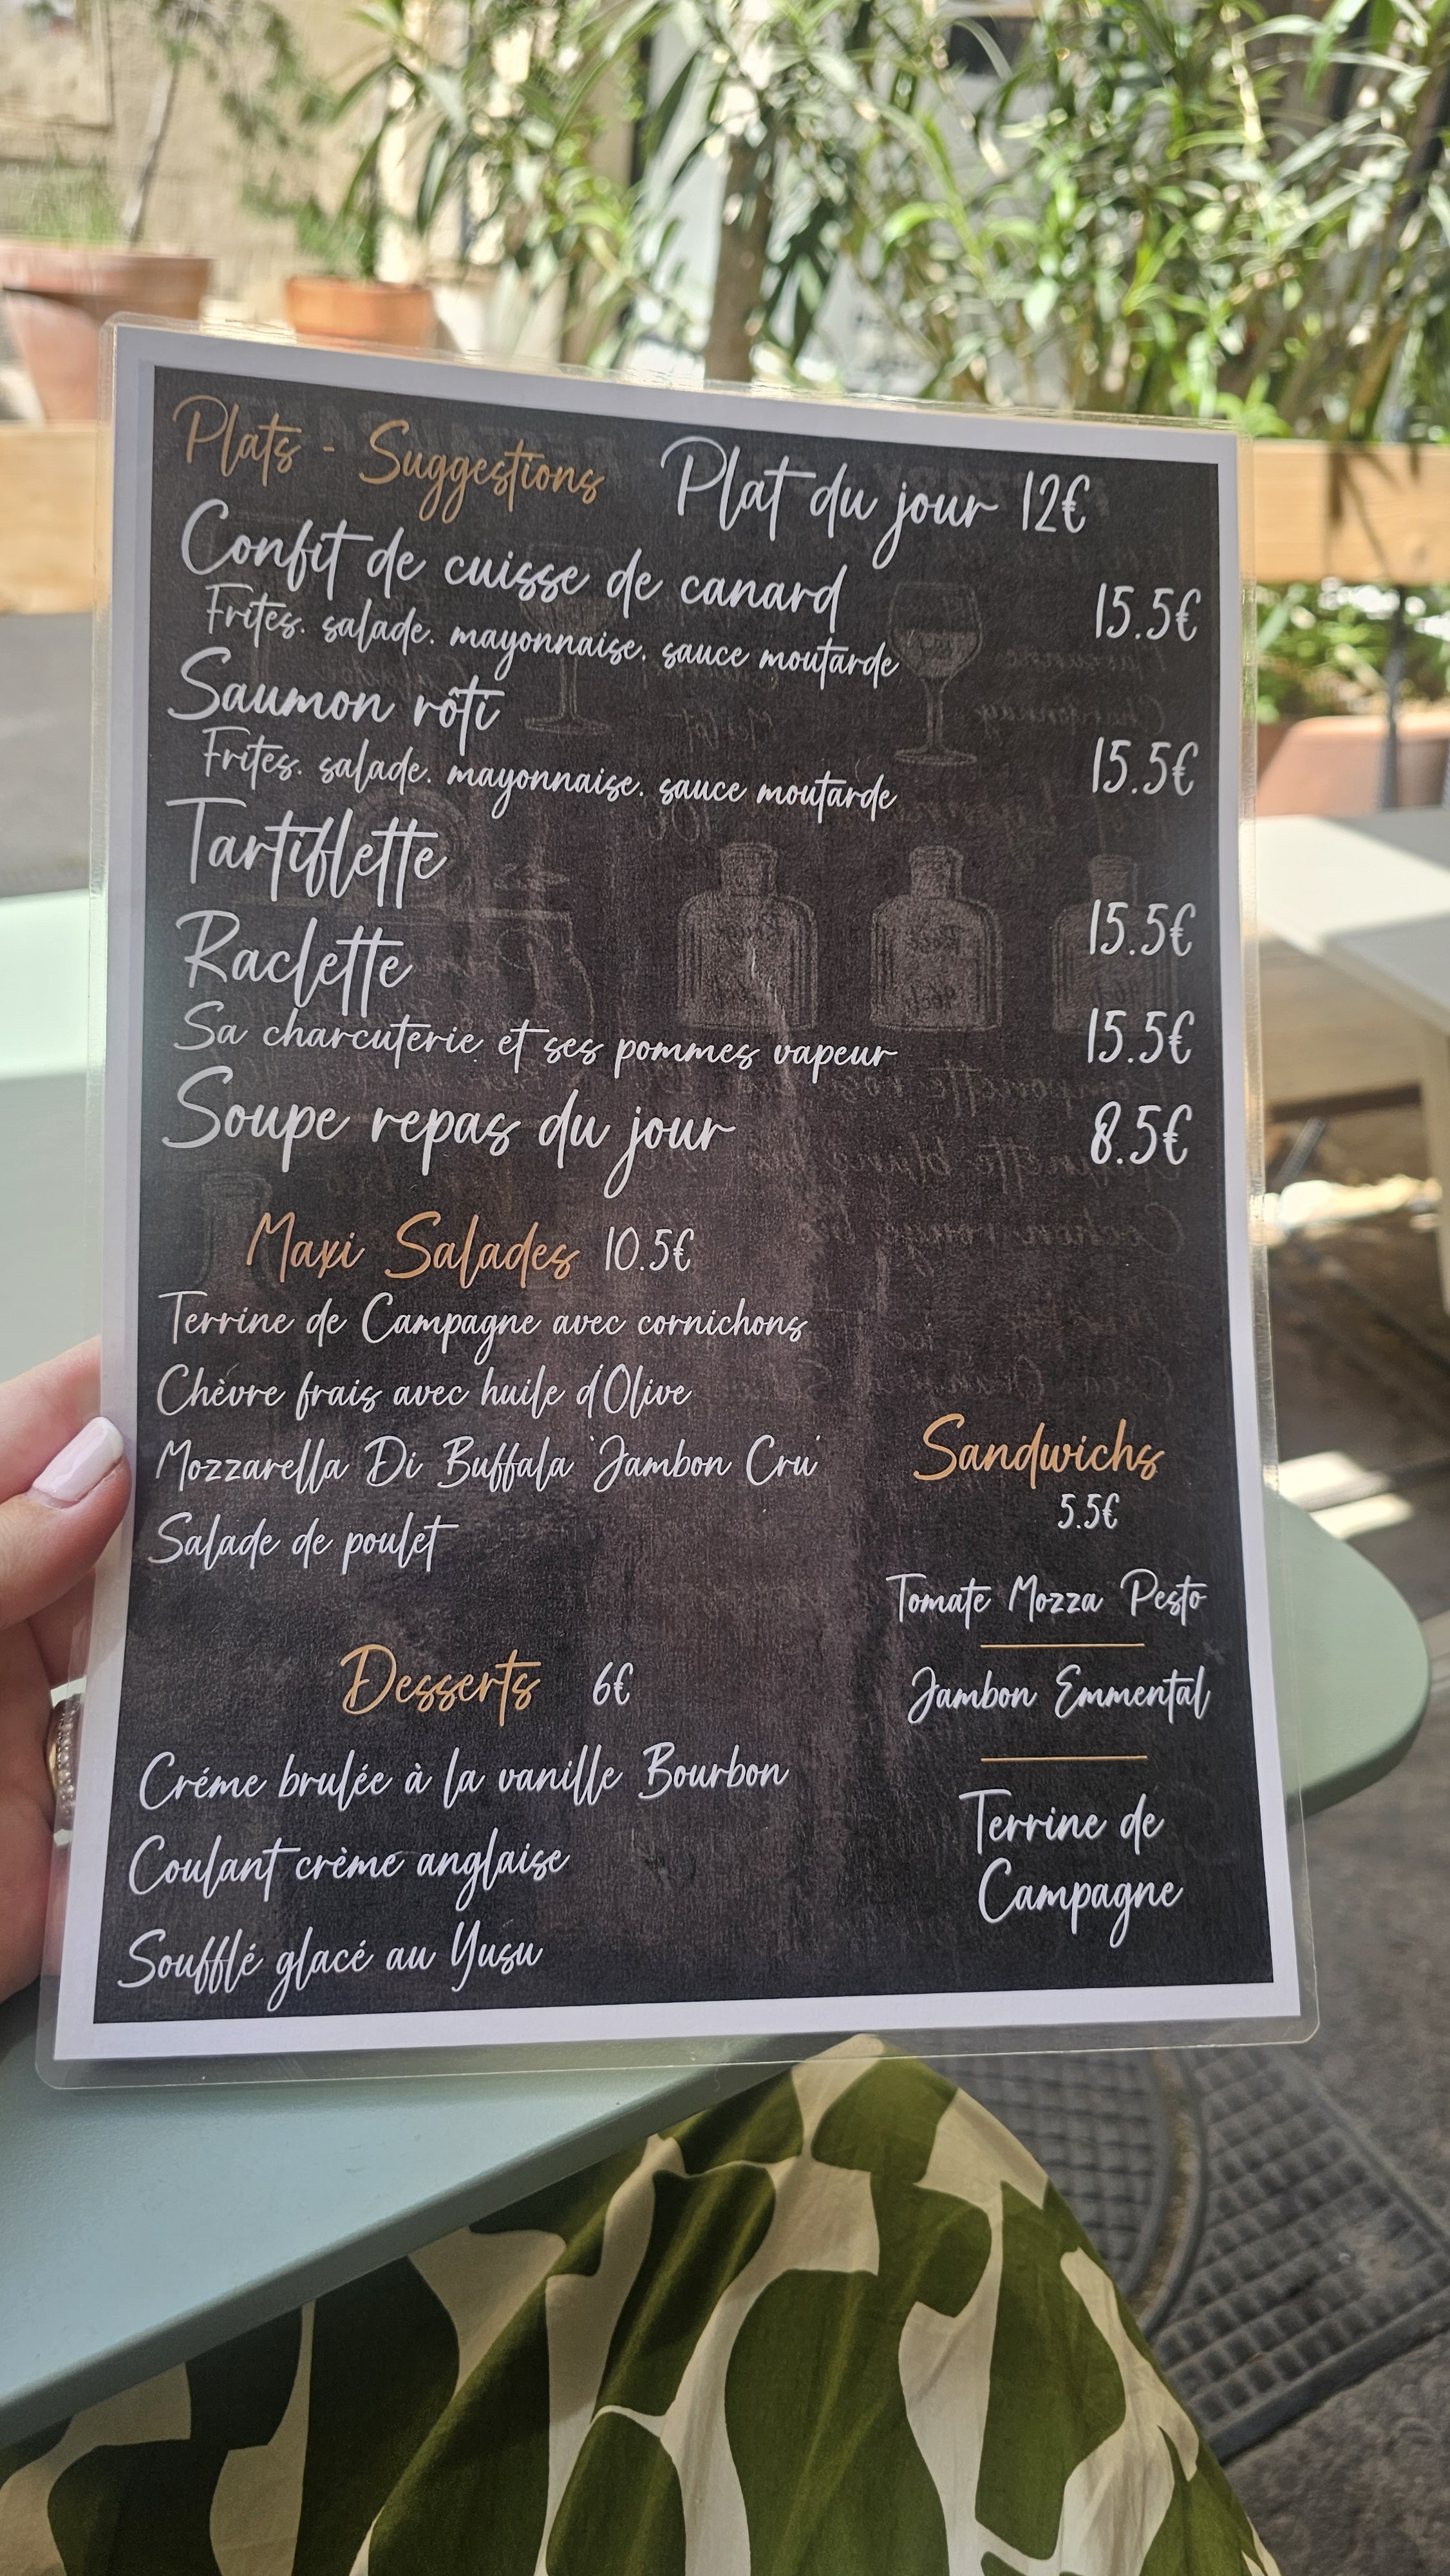 Plats - Suggestions Plat du jour 12€
Confit de cuisse de canard 15.5€
Frites. salade. mayonnaise. sauce moutarde
Saumon rôti 15.5€
Frites. salade. mayonnaise. sauce moutarde
Tartiflette 15.5€
Raclette 15.5€
Sa charcuterie et ses pommes vapeur
Soupe repas du jour 8.5€
Maxi Salades 10.5€
Terrine de Campagne avec cornichons
Chèvre frais avec huile d'Olive
Mozzarella Di Buffala 'Jambon Cru'
Salade de poulet
Desserts 6€
Créme brulée à la vanille Bourbon
Coulant crème anglaise
Soufflé glacé au Yusu
Sandwichs
5.5€
Tomate Mozza Pesto
Jambon Emmental
Terrine de
Campagne